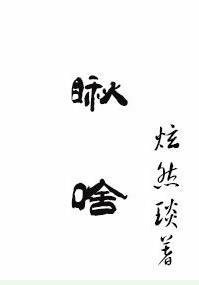 瞅啥
炫然琰著